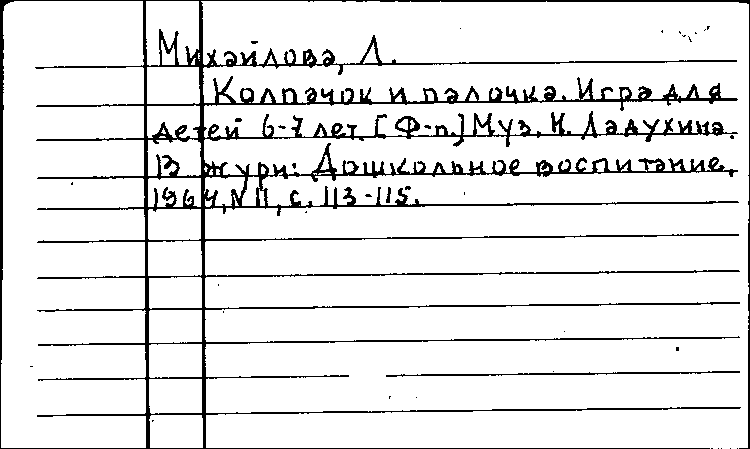 Михайлова, Л.
Колпачок и палочка. Игра для
детей 6-7 лет. [Ф-п.] Муз. Н. Ладухина.
В журн: Дошкольное воспитание,
1964, № 11, с. 113-115.